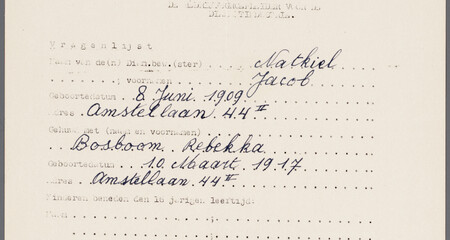 Vragenlijst
Naam van de(n) Dien.bew.(ster) Nathiel
voornamen Jacob
Geboortedatum . 8 Juni 1909
Adres . Amstellaan 44 II
Gehuwd met (naam en voornamen)
Bosboom Rebekka
Geboortedatum . 10 Maart 1917
Adres . Amstellaan 44 II
Kinderen beneden den 16 jarigen leeftijd:
Naam